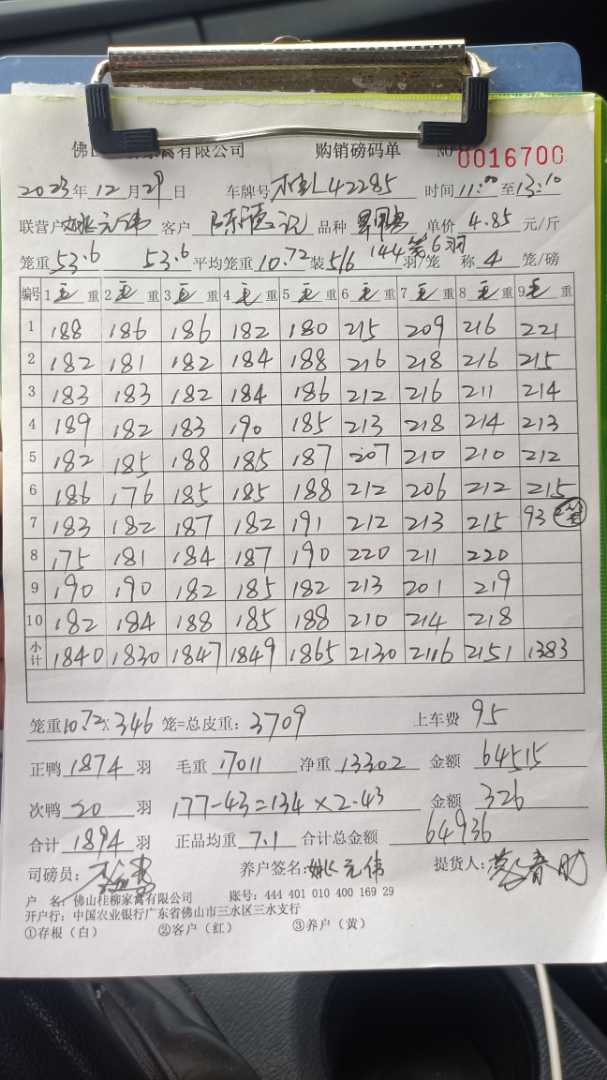 佛山 有限公司 购销磅码单 0016700
2023年12月29日 车牌号 42285 时间11:00至13:10
联营户姚元伟 客户 陈 记 品种 单价 4.85 元/斤
笼重53.6 53.6平均笼重10.72装5/6 144第6羽 羽/笼 称4笼/磅
编号 1毛重 2毛重 3毛重 4毛重 5毛重 6毛重 7毛重 8毛重 9毛重
1 188 186 186 182 180 215 209 216 221
2 182 181 182 184 188 216 218 216 215
3 183 183 182 184 186 212 216 211 214
4 189 182 183 190 185 213 218 214 213
5 182 185 188 185 187 207 210 210 212
6 186 176 185 185 188 212 206 212 215
7 183 182 187 182 191 212 213 215 93
8 175 181 184 187 190 220 211 220
9 190 190 182 185 182 213 201 219
10 182 184 188 185 188 210 214 218
小计 1840 1830 1847 1849 1865 2130 2116 2151 1383
笼重10.72×346笼=总皮重:3709 上车费 95
正鸭1874羽 毛重17011 净重13302 金额64515
次鸭20羽 177-43=134×2.43 金额326
合计1894羽 正品均重7.1 合计总金额64936
司磅员: 养户签名:姚元伟 提货人:
户 名:佛山桂柳家禽有限公司 账号:444 401 010 400 169 29
开户行:中国农业银行广东省佛山市三水区三水支行
①存根(白) ②客户(红) ③养户(黄)